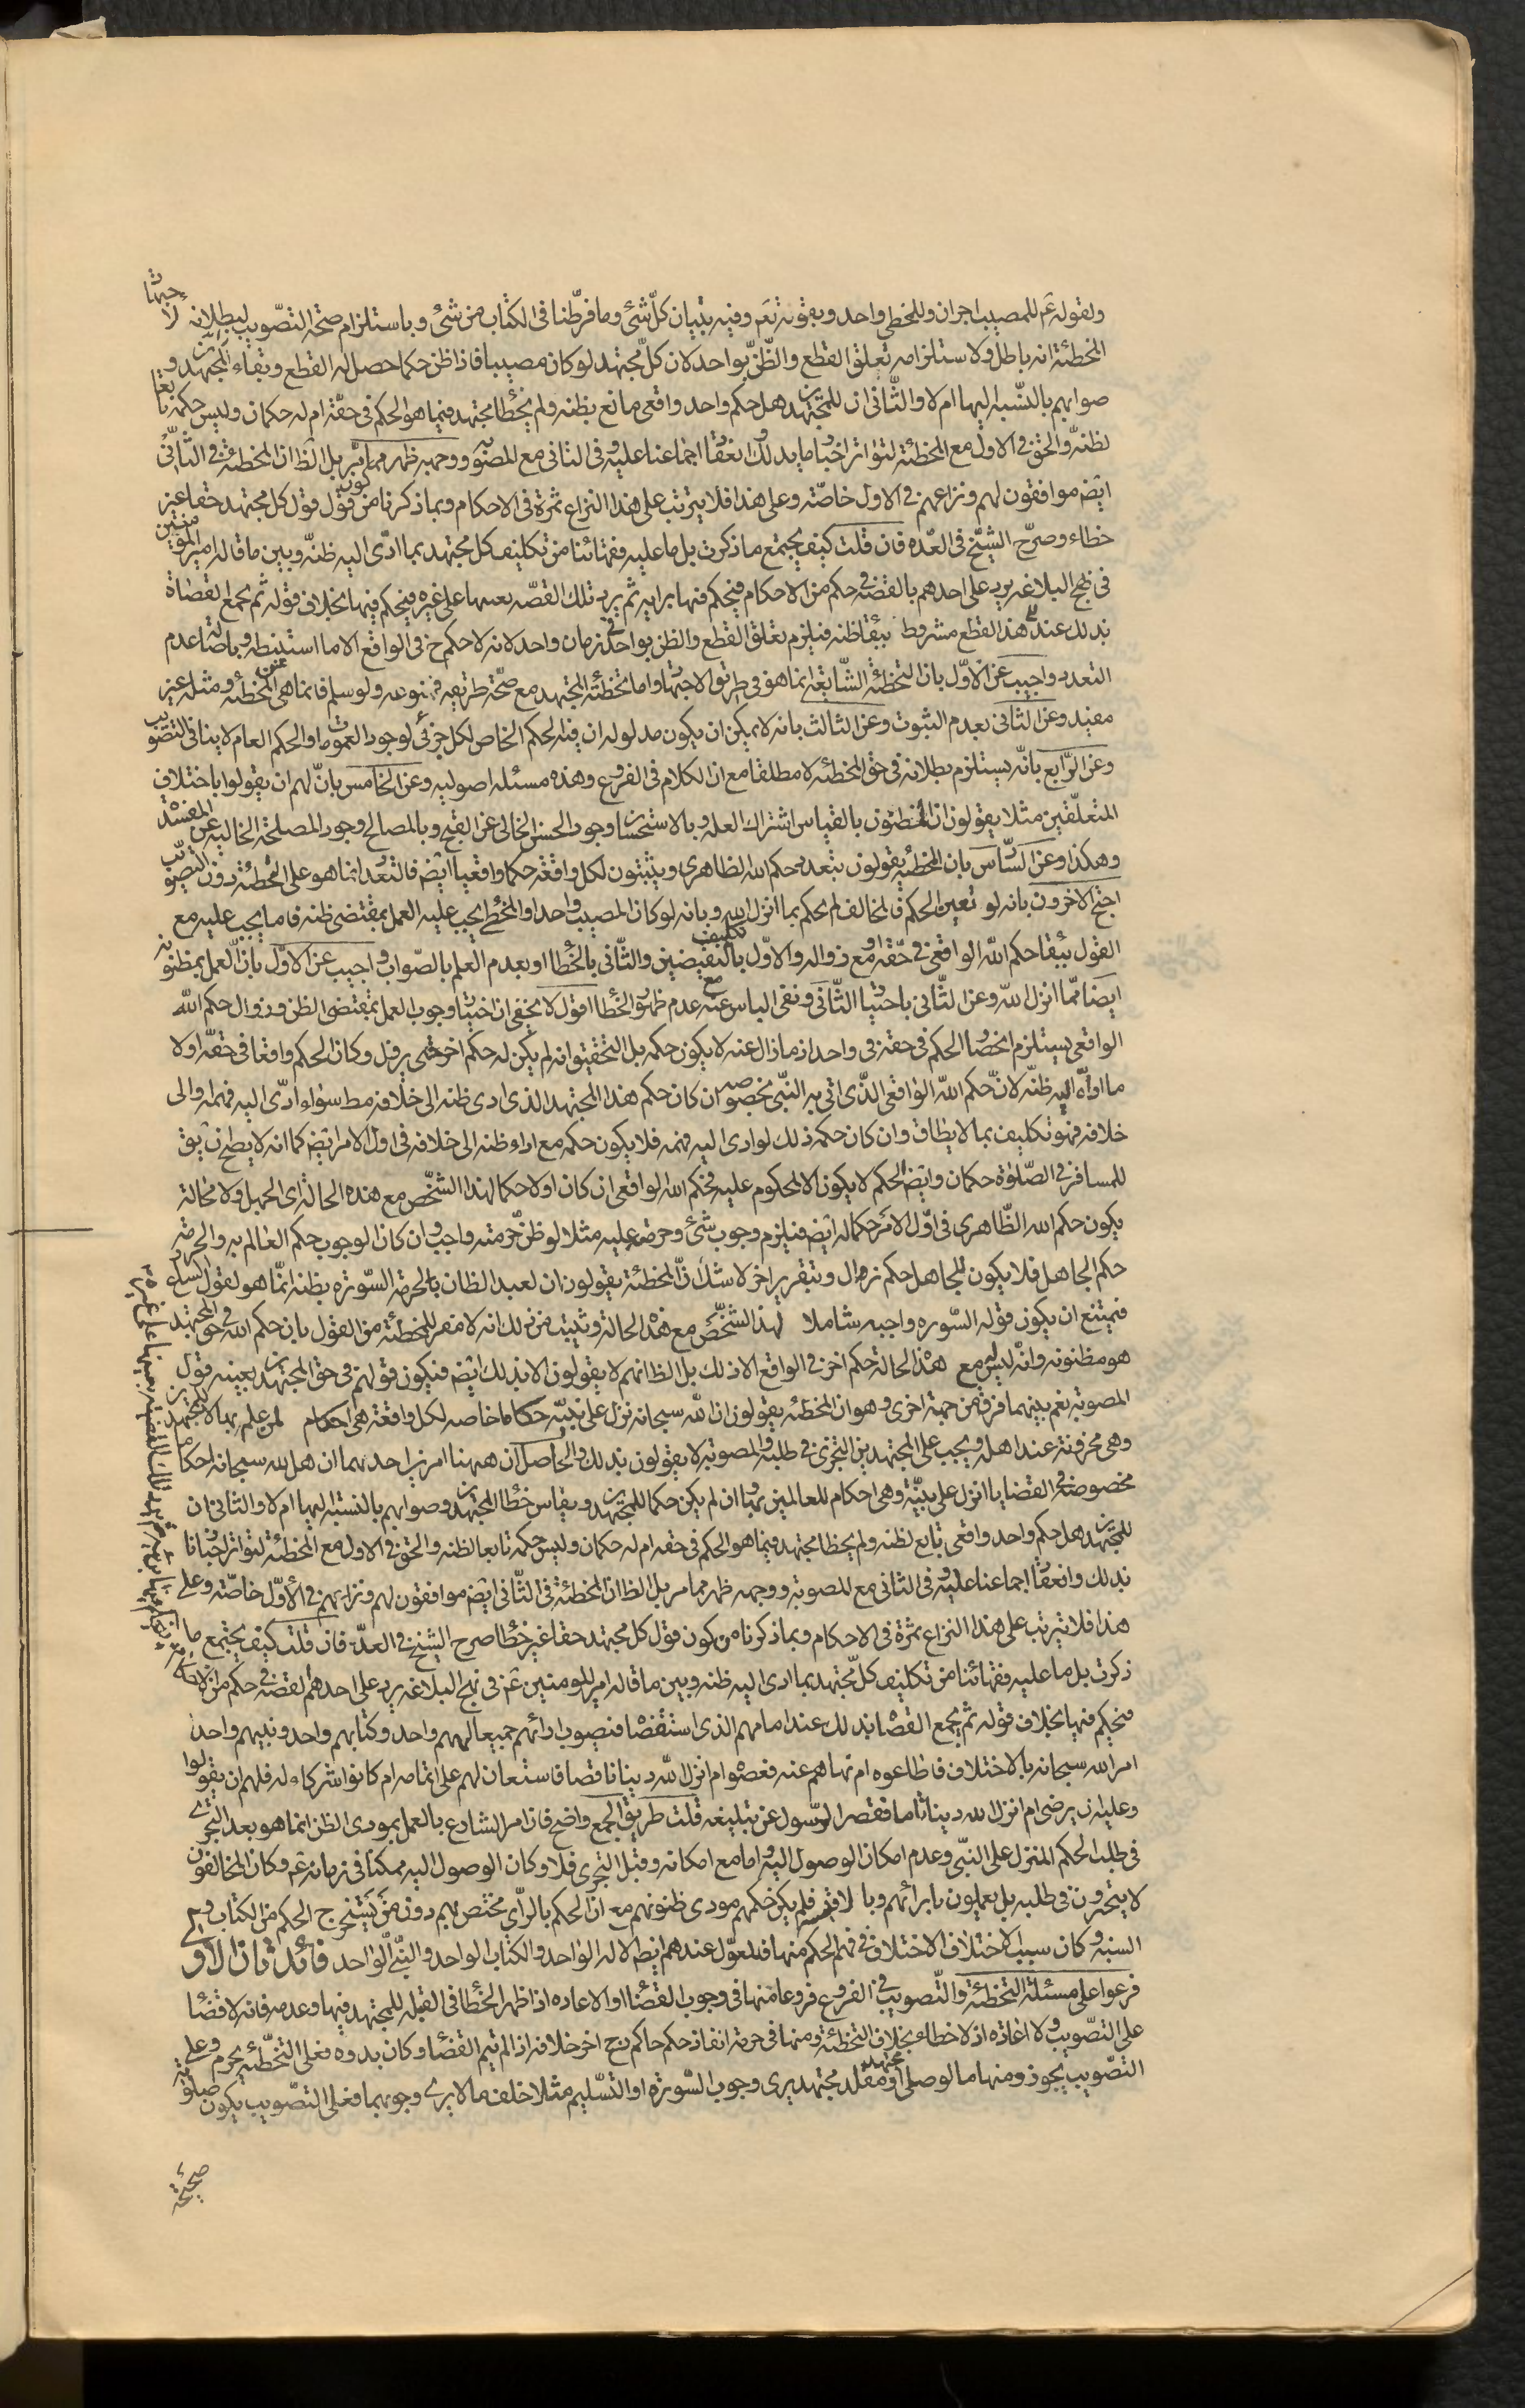 ولقوله عم للمصيب اجران وللمخطى واحد وبقوله تعم وفيه تبيان كلّ شئ وما فرّطنا فى الكتاب من شئ وباستلزام صحّة التصّويب لبطلانه لاجتها
المخطئة انه باطل ولاستلزامه تعلق القطع والظنّ بواحد لان كلّ مجتهد لو كان مصيبا فاذا ظن حكما حصل له القطع وبقاء المجتهد و
صوابهم بالنسّبه اليها ام لا والثّانى ان للمجتهد هل حكم واحد واقعى مانع بظنه ولم يخطا مجتهد فيما هو الحكم فى حقّه ام له حكمان وليس حكمه تابعا
لظنه والحق فى الاول مع المخطئة لتواتر اخبارنا بذلك وانعقا اجماعنا عليه وفى الثانى مع المصوّبه ووجهه ظهر مما مر بل الظ ان المخطئة فى الثانى
ايض موافقون لهم ونزاعهم فى الاول خاصّة وعلى هذا فلا يترتب على هذا النزاع ثمرة فى الاحكام وبما ذكرنا من كون قول كل مجتهد حقا غير
خطاء وصرّح الشيخ فى العدّه فان قلت كيف يجتمع ما ذكرت بل ما عليه فقهائنا من تكليف كل مجتهد بما ادّى اليه ظنّه وبين ما قاله امير المؤمنين
فى نهج البلاغه يرد على احدهم بالقضيّه فى حكم من الاحكام فيحكم فيها برايه ثم يرد تلك القصّه بعينها على غيره فيحكم فيها بخلاف قوله ثم يجمع القضاة
بذلك عند هذا القطع مشروط ببقاظنه فيلزم تعلق القطع والظن بواحد فى زمان واحد لانه لا حكم ح فى الواقع الا ما استنبطه وباصالة عدم
التعدد واجيب عن الاوّل بان التخطئه الشّايعة انما هو فى طريق الاجتها واما تخطئة المجتهد مع صحّة طريقه فممنوعه ولو سلم فانما هى عن المخطئه ومثله غير
مفيد وعن الثانى بعدم الثبوت وعن الثالث بانه لا يمكن ان يكون مدلوله ان فيه الحكم الخاص لكل جزئى لوجود العمومات او الحكم العام لا ينافى التصويب
وعن الرّابع بانّه يستلزم بطلانه فى حق المخطئه لا مطلقا مع ان الكلام فى الفروع وهذه مسئله اصوليه وعن الخامس بانّ لهم ان يقولوا باختلاف
المتعلّقين مثلا يقولون ان المخطئون بالقياس اشتراك العله وبالاستحسا وجود الحسن الخالى عن القبح وبالمصالح وجود المصلحة الخاليه عن المفسدة
وهكذا وعن السّاس بان المخطئه يقولون بتعدد حكم الله الظاهرى ويثبتون لكل واقعة حكما واقعيا ايض فالتعدد انما هو على المخطئه دون التصويب
احتج الاخرون بانه لو تعين الحكم فالمخالف لم يحكم بما انزل الله وبانه لو كان المصيب واحدا والمخطى يجب عليه العمل بمقتضى ظنه فاما يجب عليه مع
القول ببقا حكم الله الواقعى فى حقّه او مع زواله والاوّل تكليف بالنقيضين والثّانى بالخطا او بعدم العلم بالصّواب واجيب عن الاوّل بان العمل بمظنونه
ايضا ممّا انزل للّه وعن الثّانى باختيا الثّانى ونفى الباس عنه مع عدم ظهو الخطا اقول لا يخفى ان اختيا وجوب العمل بمقتضى الظن وزوال حكم الله
الواقعى يستلزم انحصا الحكم فى حقه فى واحد اذ ما زال عنه لا يكون حكمه بل التحقيق انه لم يكن له حكم اخر حتى يزول وكان الحكم واقعا فى حقّه اولا
ما ادّاه اليه ظنّه لانّ حكم اللّه الواقعى الذّى اتى به النّبى بخصوصه ان كان حكم هذا المجتهد الذى ادى ظنه الى خلافه مط سواء ادّى اليه فهمه او الى
خلافه فهو تكليف بما لا يطاق وان كان حكمه ذلك لو ادى اليه فهمه فلا يكون حكمه مع اداء ظنه الى خلافه فى اول الامر ايض كما انه لا يصح ان يق
للمسافر فى الصّلوة حكمان وايض الحكم لا يكون الا لمحكوم عليه فحكم الله الواقعى ان كان اولا حكما لهذا الشخص مع هذه الحالة اى الجهل ولا محالة
يكون حكم الله الظّاهرى فى اوّل الامر حكما له ايض فيلزم وجوب شئ وحرمته عليه مثلا لو ظن حرمته واجب وان كان الوجوب حكم العالم به والحرمة
حكم الجاهل فلا يكون للجاهل حكم زوال وبتقرير اخر لا شك انّ المخطئة يقولون ان لعبد الظان بالحرمة السّورة بظنه انما هو لقول الشارع
فيمتنع ان يكون قوله السّوره واجبه شاملا لهذ الشخص مع هذه الحالة وثبت من ذلك انه لا مفر للمخطئة من القول بان حكم اللّه فى حق المجتهد
هو مظنونه وانه ليس له مع هذه الحالة حكم اخر فى الواقع الا ذلك بل الظ انهم لا يقولون الا بذلك ايض فيكون قولهم فى حق المجتهد بعينه قول
المصوبه نعم بينهما فرق من جهة اخرى وهو ان المخطئه يقولون ان اللّه سبحانه نزل على نبيّه حكما خاصه لكل واقعة هى احكام لمن علم بها لا للمجتهد
وهى مخزونة عند اهله ويجب على المجتهدين التحرى فى طلبه والمصوبة لا يقولون بذلك والحاصل ان ههنا امرين احدهما ان هل لله سبحانه احكاما
مخصوصة فى القضايا انزل على نبيّه وهى احكام للعالمين بها وان لم يكن حكما للمجتهد ويقاس خطا المجتهد وصوابهم بالنسبة اليها ام لا والثانى ان
للمجتهد هل حكم واحد واقعى تابع لظنه ولم يخطا مجتهد فيما هو الحكم فى حقه ام له حكمان وليس حكمه تابعا لظنه والحق فى الاول مع المخطئة لتواتر اخبارنا
بذلك وانعقا اجماعنا عليه وفى الثانى مع المصوبة ووجهه ظهر مما مر بل الظ ان المخطئة فى الثّانى ايض موافقون لهم ونزاعهم فى الأوّل خاصّة وعلى
هذا فلا يترتب على هذا النزاع ثمرة فى الاحكام وبما ذكرنا من كون قول كل مجتهد حقا غير خطا صرح الشيخ فى العدّه فان قلت كيف يجتمع ما
ذكرت بل ما عليه فقهائنا من تكليف كلّ مجتهد بما ادى اليه ظنه وبين ما قاله امير المومنين عم فى نهج البلاغه يرد على احدهم القضيه فى حكم من الاحكام
فيحكم فيها بخلاف قوله ثم يجمع القضا بذلك عند امامهم الذى استقضا فيصوب ارائهم جميعا الههم واحد وكتابهم واحد ونبيهم واحد
امر الله سبحانه بالاختلاف فاطاعوه ام نهاهم عنه فعصوه ام انزل اللّه دينا ناقصا فاستعان لهم على اتمامه ام كانوا شركاء له فلهم ان يقولوا
وعليه ان يرضى ام انزل الله دينا تاما فقصر الرّسول عن تبليغه قلت طريق الجمع واضح فان امر الشارع بالعمل بمودى الظن انما هو بعد التحرّى
فى طلب الحكم المنزل على النبّى وعدم امكان الوصول اليه واما مع امكانه وقبل التحرى فلا وكان الوصول اليه ممكنا فى زمانه عم وكان المخالفون
لا يتحرون فى طلبه بل يعملون بارائهم وبا لاقيسه فلم يكن حكمهم مودى ظنونهم مع ان الحكم بالرّاى مختص بهم دون من يستخرج الحكم من الكتاب و
السنة وكان سبب الاختلاف الاختلاف فى فهم الحكم منها فالمعوّل عندهم ايض الاله الواحد والكتاب الواحد والنّبى الواحد فائدثان الاو
فرعوا على مسئلة التخطئة والتّصويب فى الفروع فروعا منها فى وجوب القضا او الاعاده اذا ظهر الخطا فى القبله للمجتهد فيها وعدمه فانه لا قضا
على التصّويب ولا اعاده اذ لا خطاء بخلاف التخطئة ومنها فى حرمة انفاذ حكم حاكم رجح اخر خلافه اذ الم يتم القضا وكان بدوه فعلى التخطّئه يحرم وعلى
التصّويب يجوز ومنها ما لو صلى مجتهد او مقلد مجتهد يرى وجوب السّورة او التسّليم مثلا خلف ما لا يرى وجوبهما فعلى التصّويب يكون صلوته
صحيحة